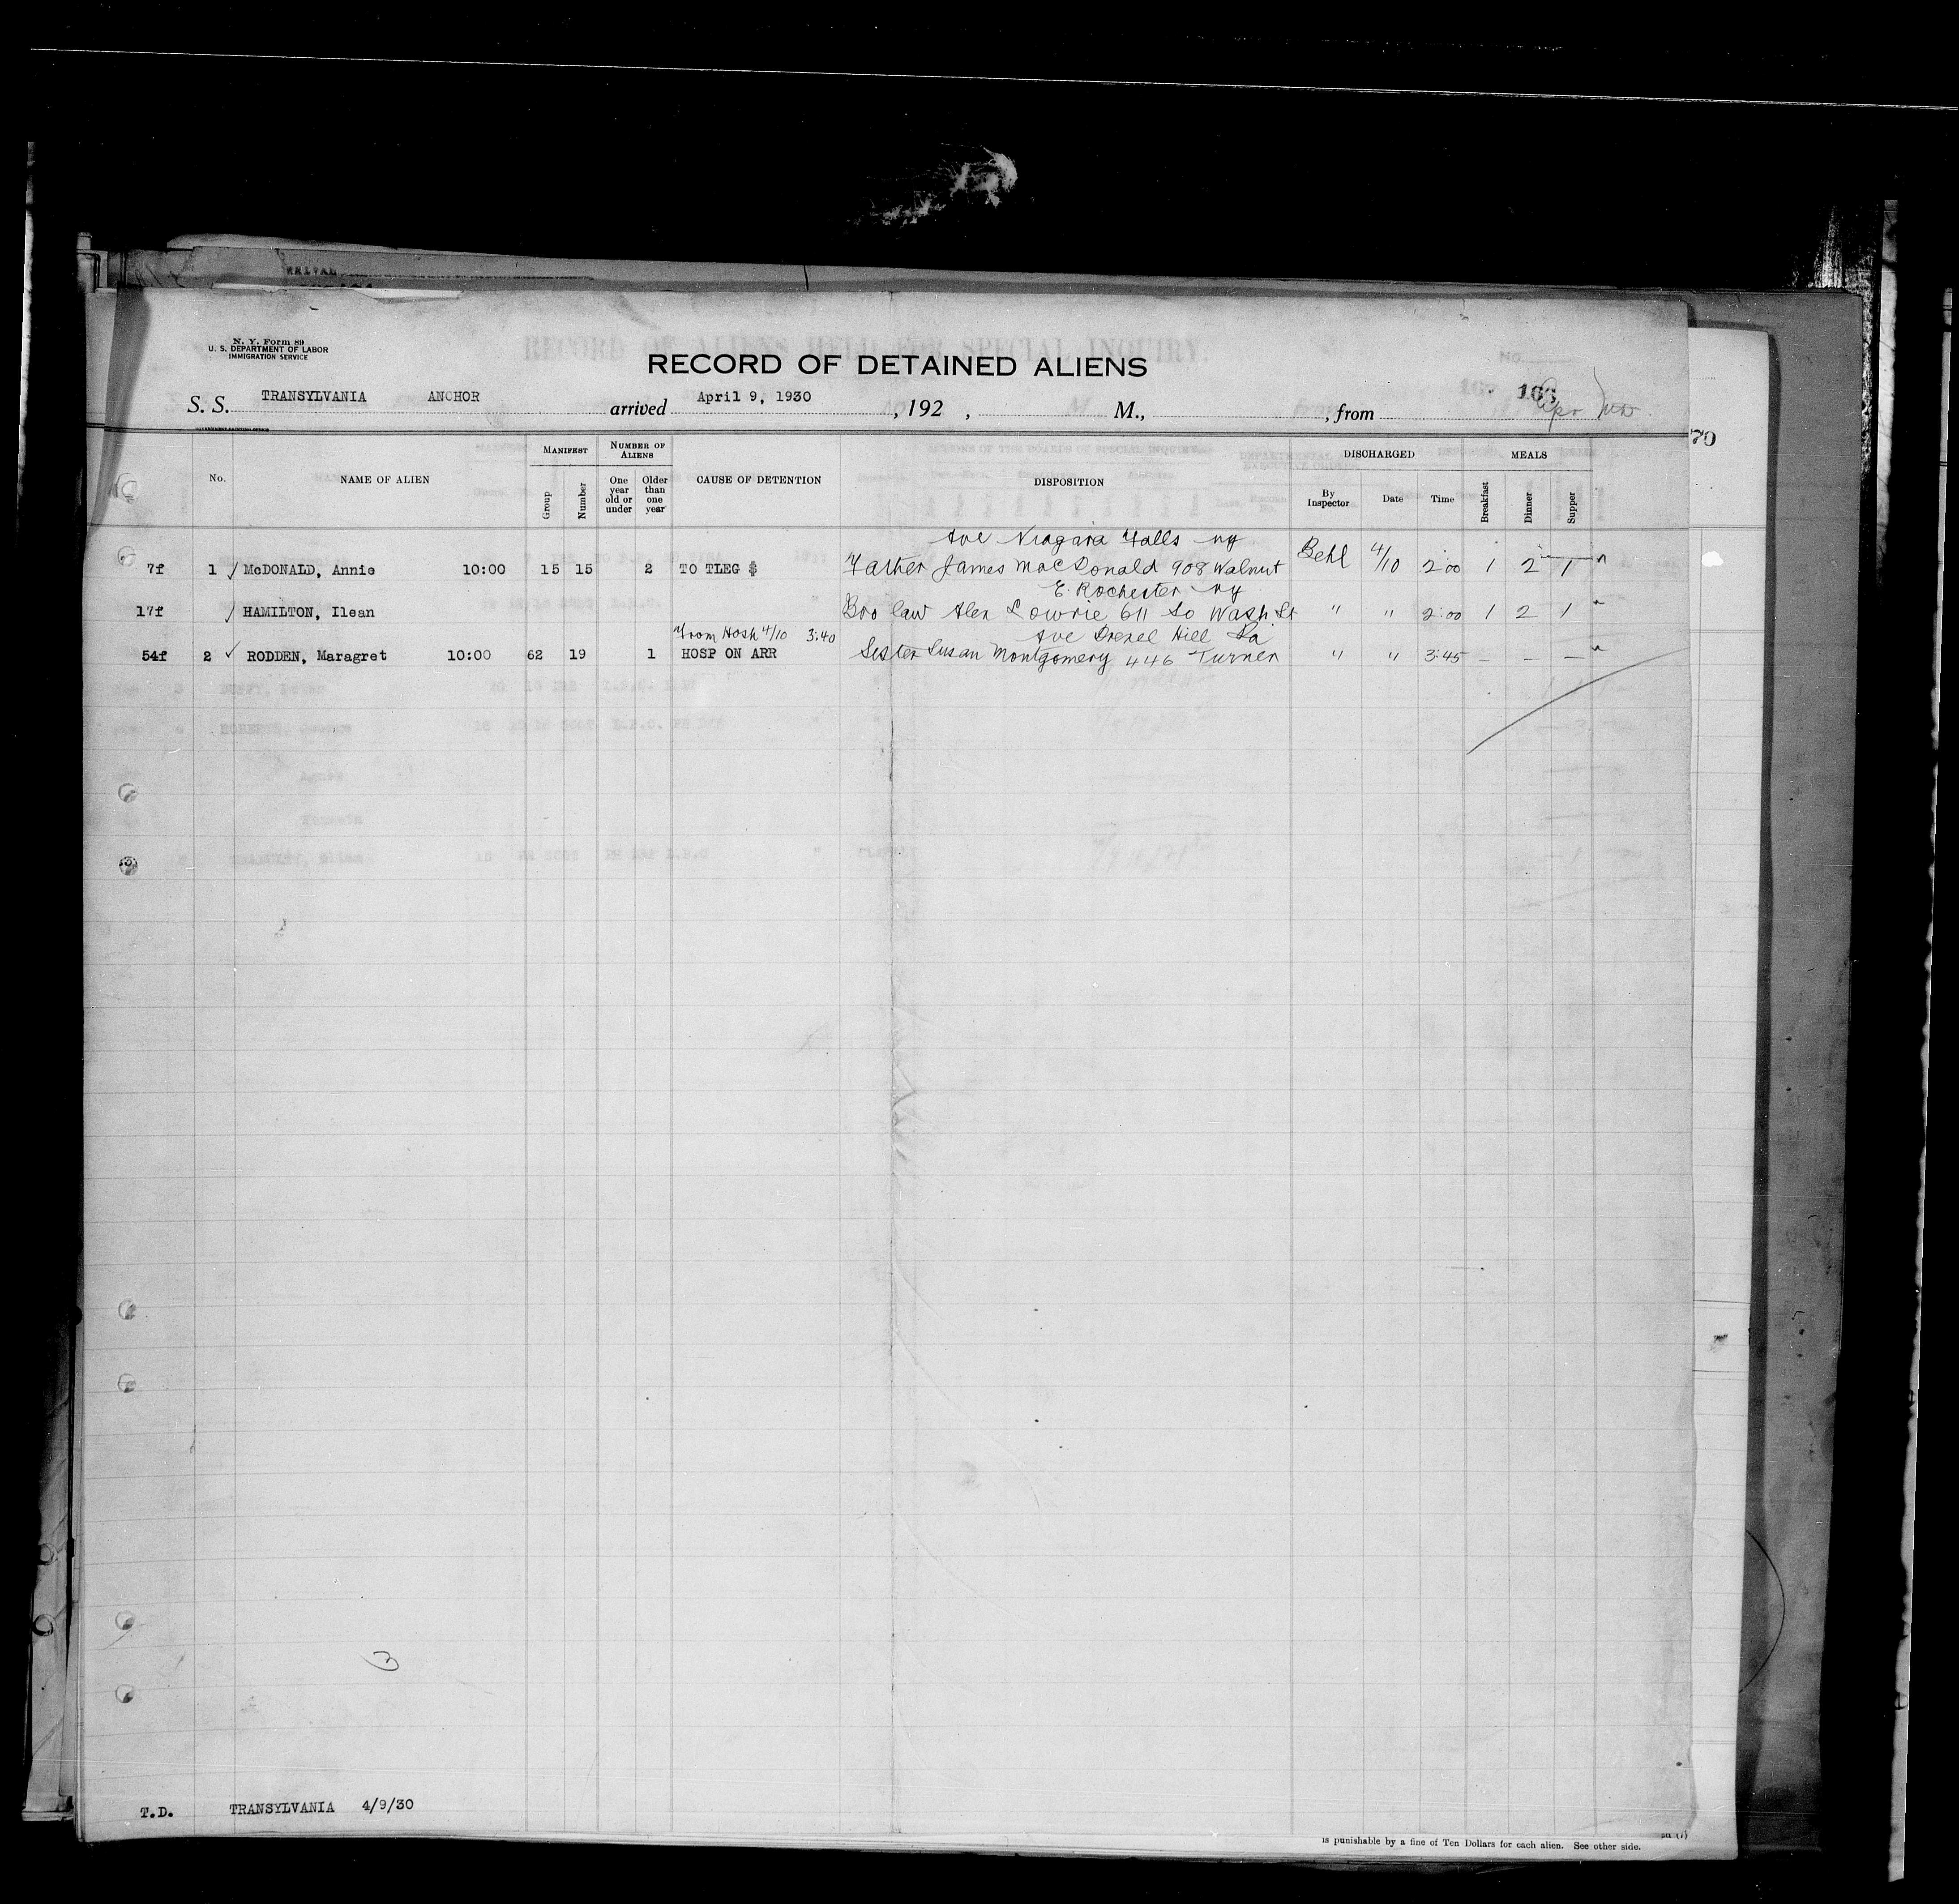 RRIVAL
N. Y. Form 89
U. S. DEPARTMENT OF LABOR
IMMIGRATION SERVICE
RECORD OF ALIENS HELD FOR SPECIAL INQUIRY.
No.
RECORD OF DETAINED ALIENS
166
S. S. TRANSYLVANIA ANCHOR arrived April 9, 1930, 192 , M., , from
70
No.
NAME OF ALIEN
MANIFEST
Group
Number
NUMBER OF ALIENS
One year old or under
Older than one year
CAUSE OF DETENTION
DISPOSITION
DISCHARGED
By Inspector
Date
Time
MEALS
Breakfast
Dinner
Supper
Ave Niagara Falls NY
7f 1 McDONALD, Annie 10:00 15 15 2 TO TLEG $ Father James MacDonald 908 Walnut Behl 4/10 2:00 1 2 1
E. Rochester NY
17f HAMILTON, Ilean Bro law Alex Lowrie 611 So Wash St " " 2:00 1 2 1
From Hosp 4/10 3:40 Ave Drexel Hill Pa
54f 2 ✓ RODDEN, Maragret 10:00 62 19 1 HOSP ON ARR Sister Susan Montgomery 446 Turner " " 3:45 – – –
3
T.D. TRANSYLVANIA 4/9/30
is punishable by a fine of Ten Dollars for each alien. See other side.